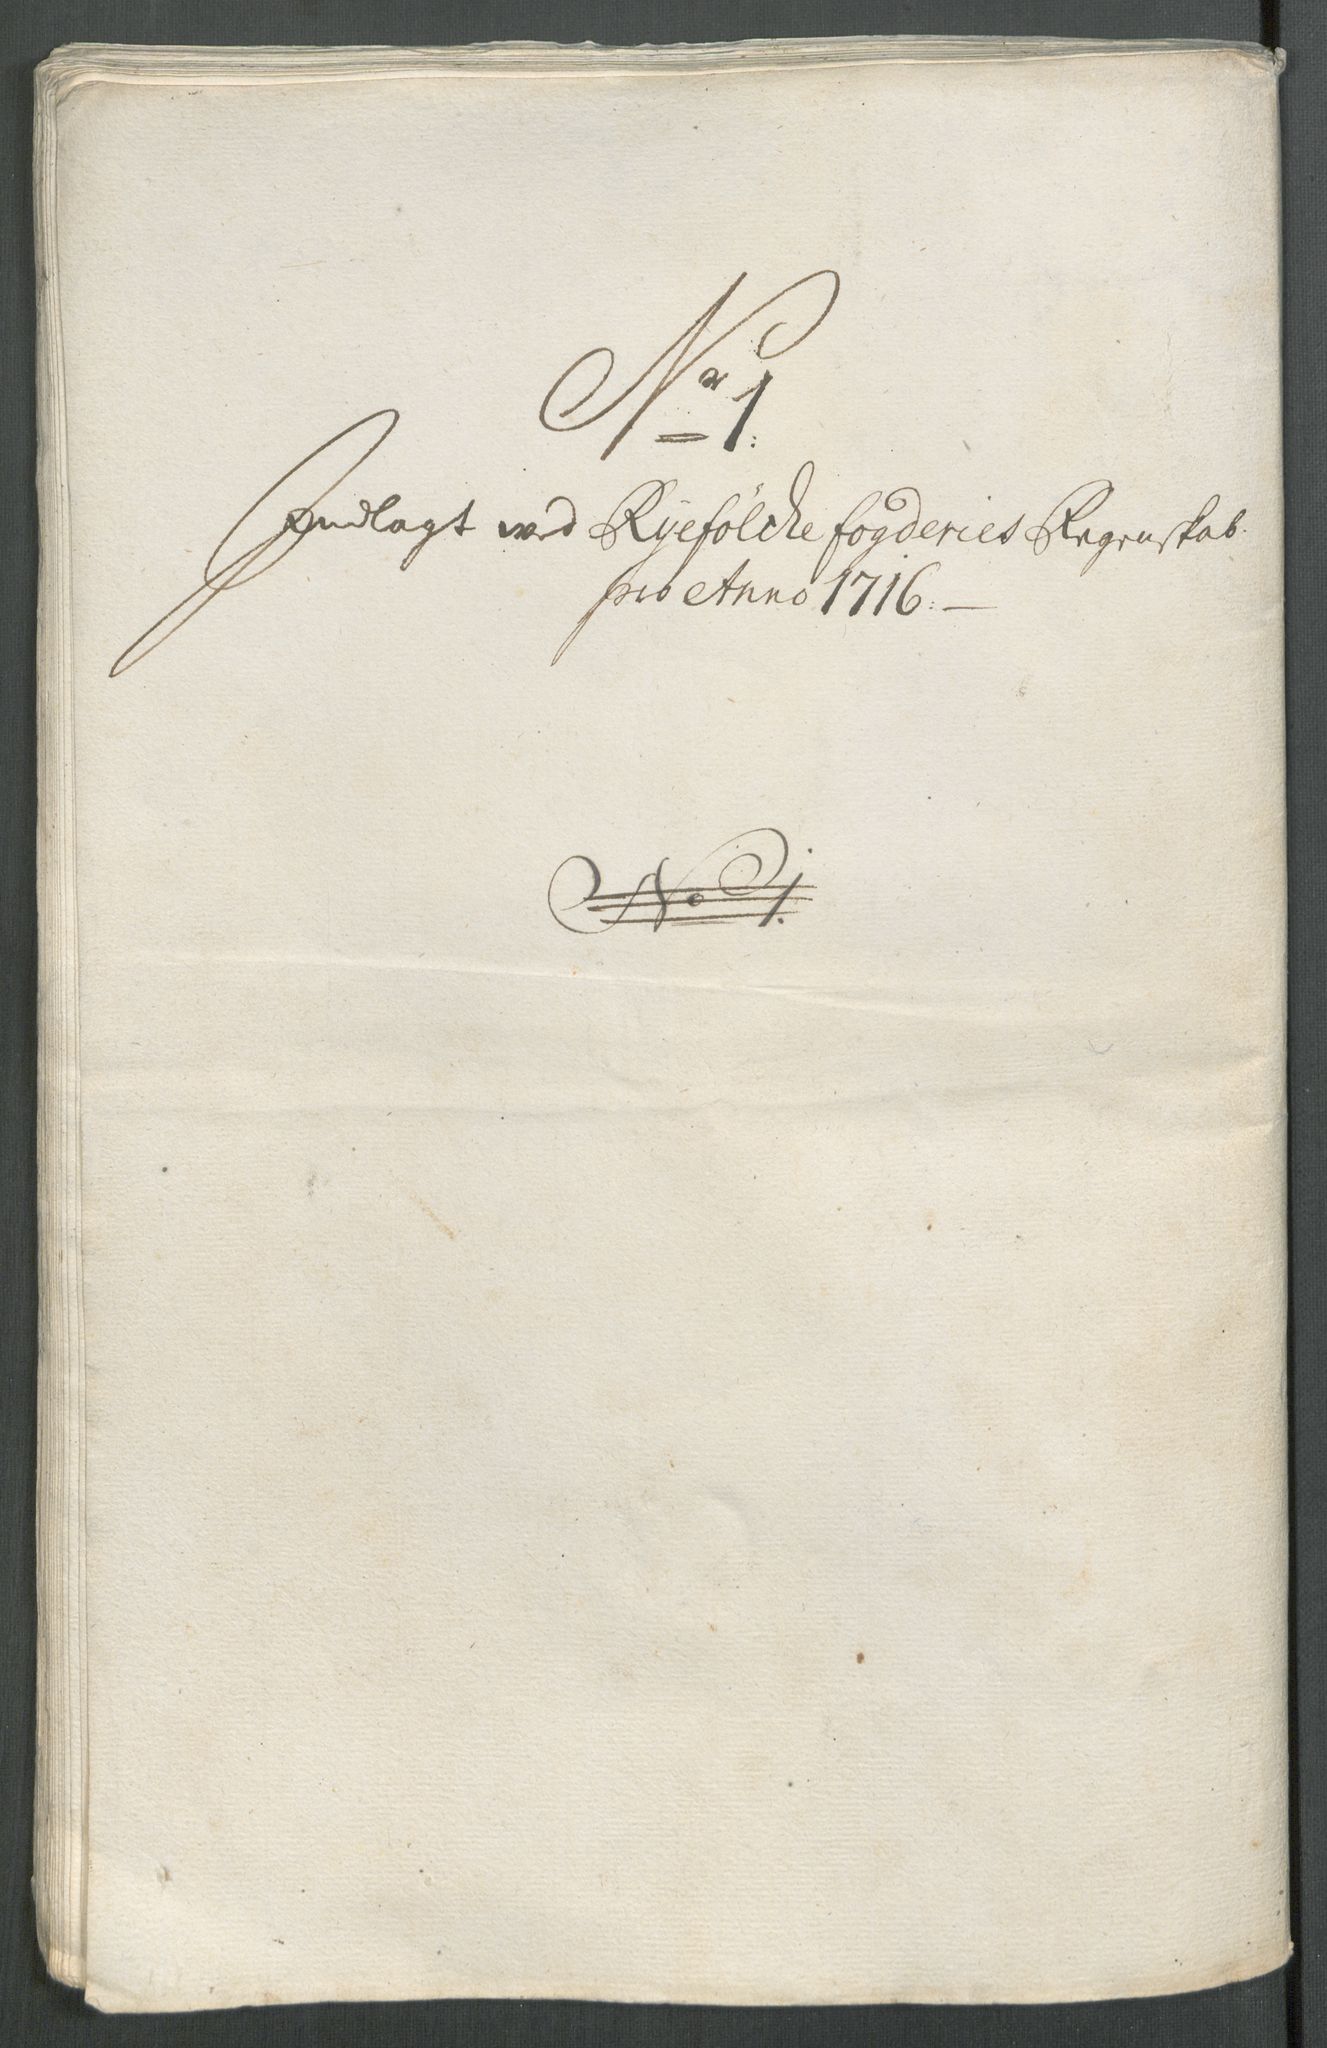 Nr 1:
Indlagt ved Ryefölcke fogderies Regenskab
pro Anno 1716: —
No 1.